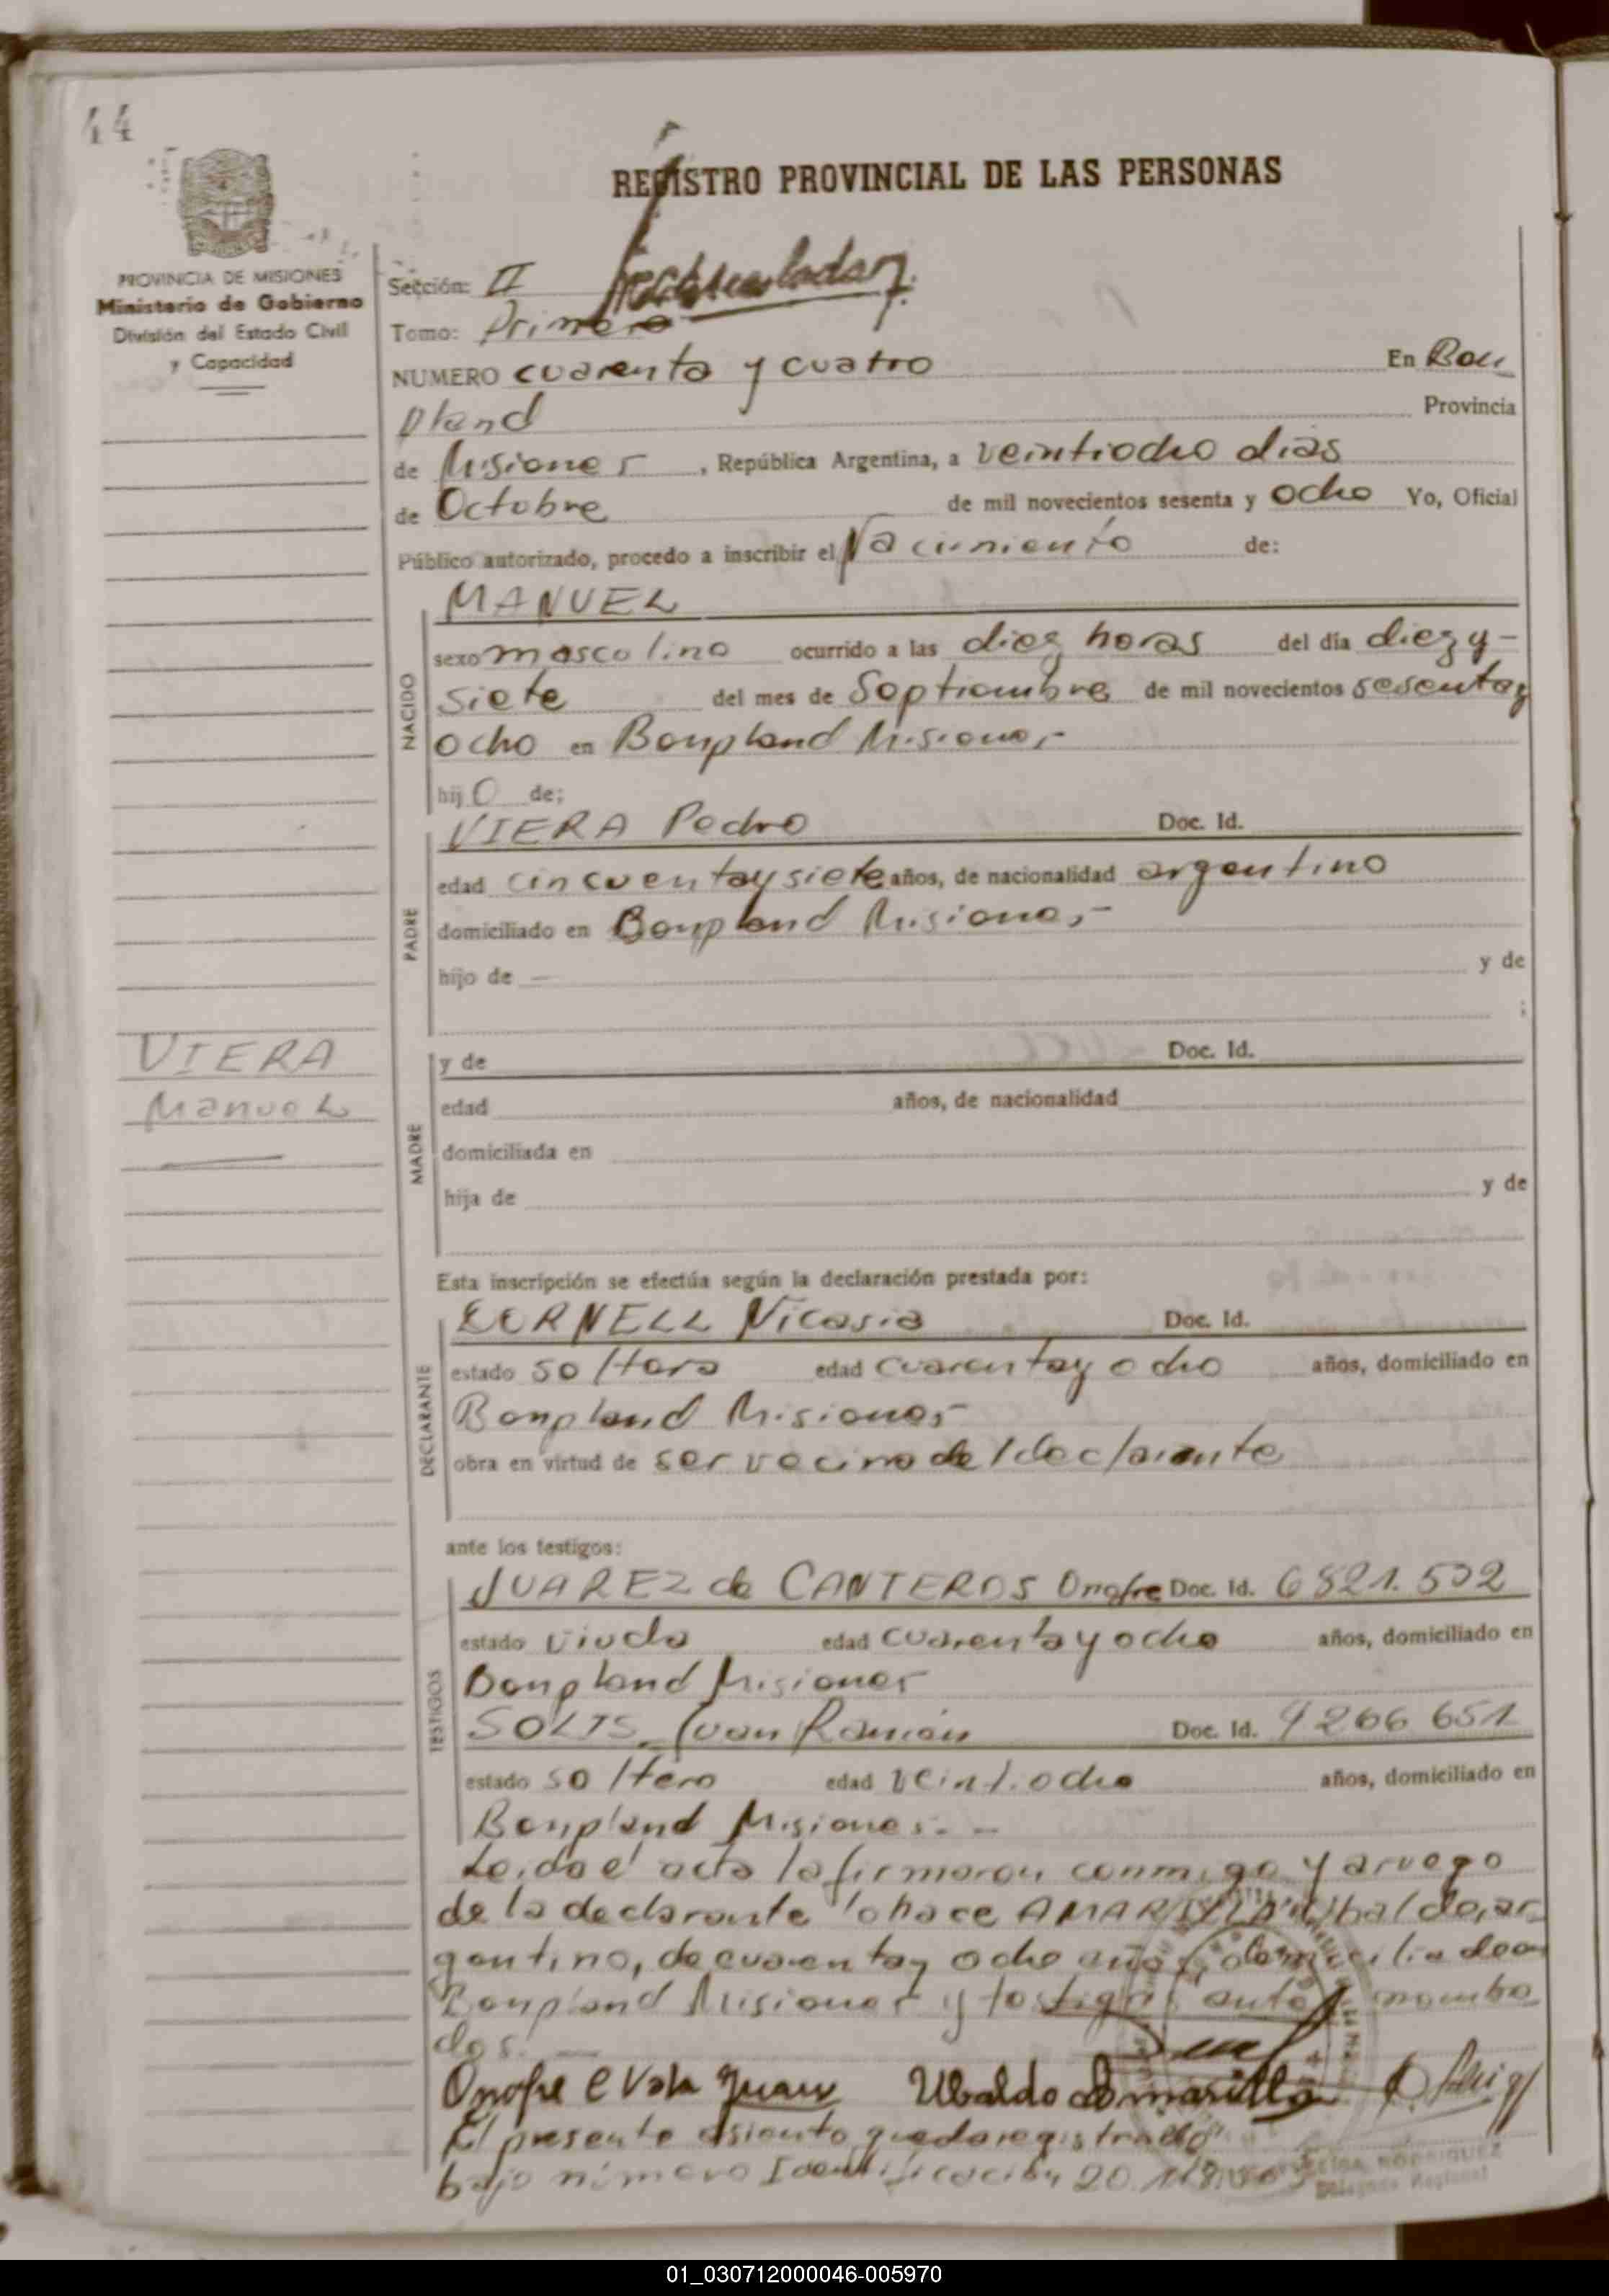 44
REGISTRO PROVINCIAL DE LAS PERSONAS
PROVINCIA DE MISIONES
Ministerio de Gobierno
División del Estado Civil
y Capacidad
Sección: II
Tomo: Primero
NUMERO cuarenta y cuatro En Bon
pland Provincia
de Misiones, República Argentina, a veintiocho dias
de Octubre de mil novecientos sesenta y ocho Yo, Oficial
Público autorizado, procedo a inscribir el Nacimiento de:
NACIDO
MANUEL
sexo masculino ocurrido a las diez horas del día diez y -
siete del mes de Septiembre de mil novecientos sesenta y
ocho en Bonpland Misiones -
hijo de;
PADRE
VIERA Pedro Doc. Id.
edad cincuenta y siete años, de nacionalidad argentino
domiciliado en Bonpland Misiones -
hijo de — y de
;
VIERA
Manuel
MADRE
y de Doc. Id.
edad años, de nacionalidad
domiciliada en
hija de y de
Esta inscripción se efectúa según la declaración prestada por:
DECLARANTE
Nicasia Doc. Id.
estado soltera edad cuarenta y ocho años, domiciliado en
Bonpland Misiones -
obra en virtud de ser vecino del declarante
ante los testigos:
TESTIGOS
JUAREZ de CANTEROS Onofre Doc. Id. 6821.502
estado viuda edad cuarenta y ocho años, domiciliado en
Bonpland Misiones
SOLIS Juan Ramón Doc. Id. 9266 651
estado soltero edad veintiocho años, domiciliado en
Bonpland Misiones. -
Leida el acta la firmaron conmigo y a ruego
de la declarante lo hace AMARILLA Ubaldo, ar
gentino, de cuarenta y ocho años, domiciliado en
Bonpland Misiones y testigos antes nombra
dos. —
Onofre Juan Ubaldo Amarilla
El presente asiento queda registrado
bajo número Identificación 20.
RODRIGUEZ
Delegado Regional
01_030712000046-005970